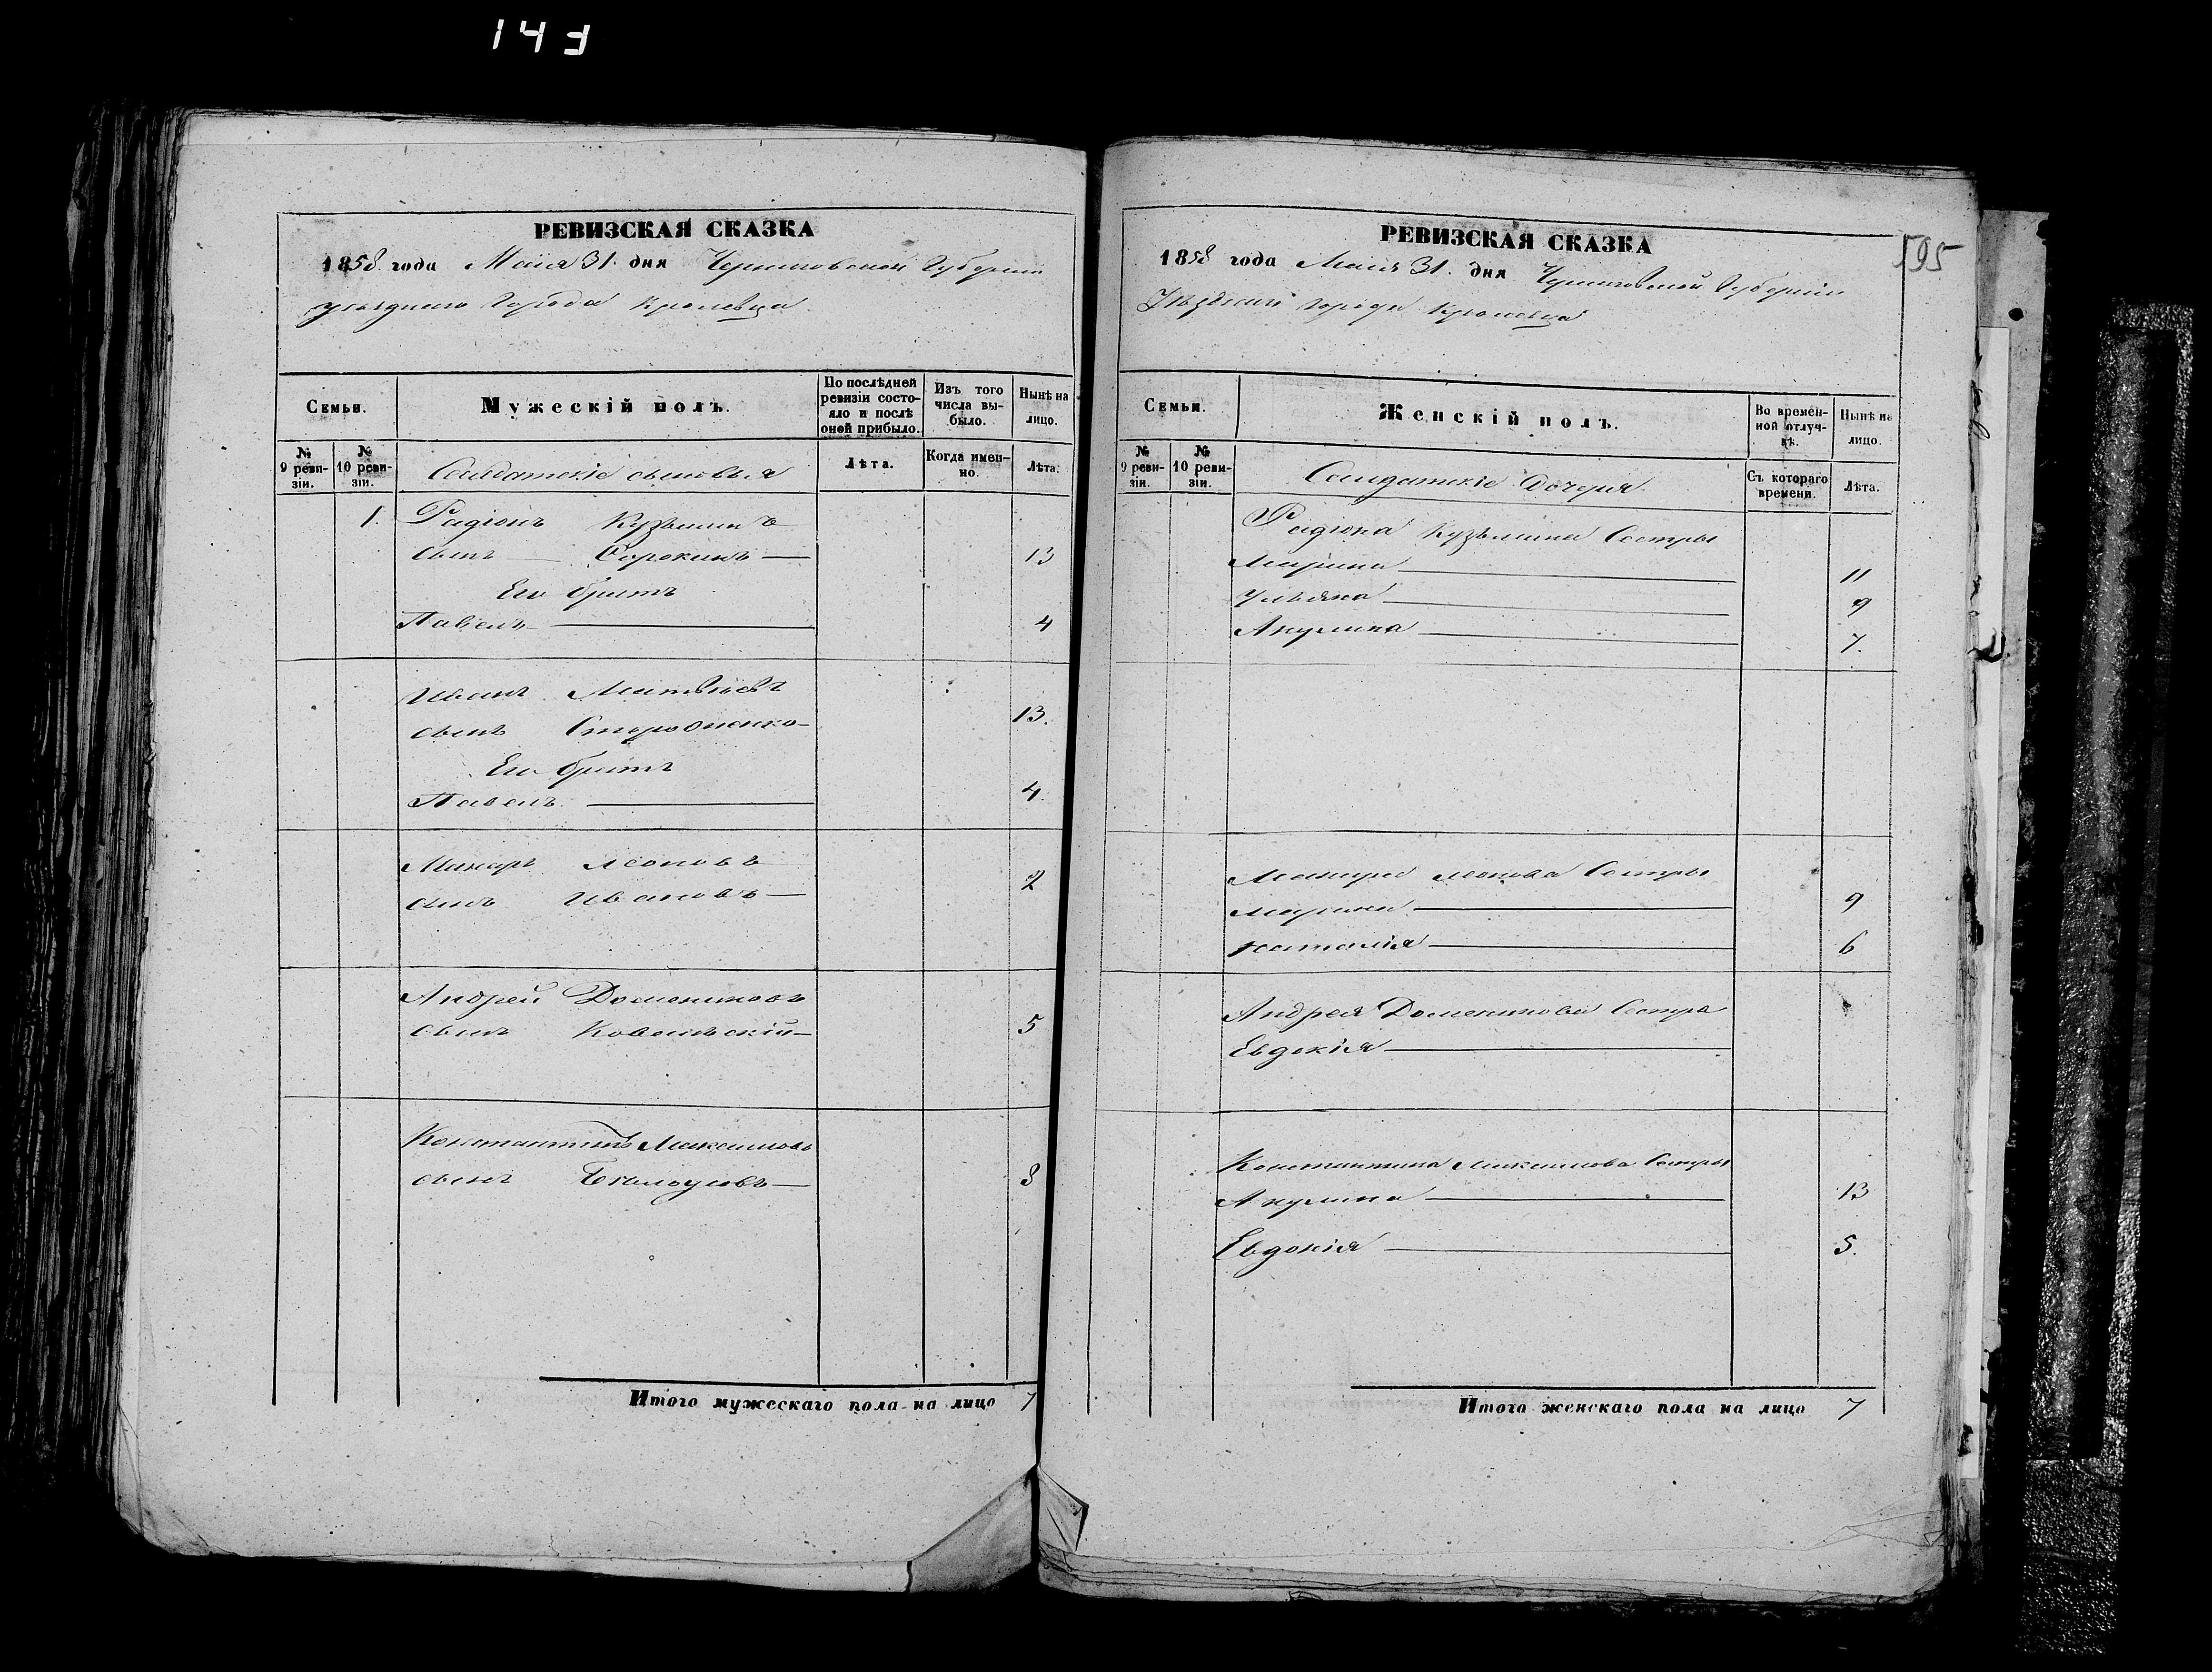 143
РЕВИЗСКАЯ СКАЗКА
1858. года Маія 31. дня Черниговской Губерніи
уѣзднаго Города Кролевца
Семьи.
Мужескій полъ.
По послѣдней ревизіи состояло и послѣ оной прибыло.
Изъ того числа выбыло.
Нынѣ на лицо.
№ 9 ревизіи.
№ 10 ревизіи.
Солдатскіе сыновья
Лѣта.
Когда именно.
Лѣта.
1. Радіонъ Кузьминъ
сынъ Сорокинъ 13
Его братъ
Павелъ 4
Иванъ Матвѣевъ
сынъ 13.
Его братъ
Павелъ 4.
Макаръ Леоновъ 2
сынъ Ивановъ
Андрей Домениковъ
сынъ Ковалевскій 5
Константинъ Максимовъ
сынъ 8
Итого мужескаго пола на лицо 7
595
РЕВИЗСКАЯ СКАЗКА
1858 года Маія 31. дня Черниговской Губерніи
Уѣзднаго города Кролевца
Семьи.
Женскій полъ.
Во временной отлучкѣ.
Нынѣ на лицо.
№ 9 ревизіи.
№ 10 ревизіи.
Солдатскіе Дочеря
Съ котораго времени.
Лѣта.
Радіона Кузьмина Сестры
Марина 11
Ульяна 9
Акулина 7.
Макара Леонова Сестры
Марина 9
Наталія 6
Андрея Доменикова Сестра
Евдокія
Константина Максимова Сестры
Акулина 13
Евдокія 5.
Итого женскаго пола на лицо 7